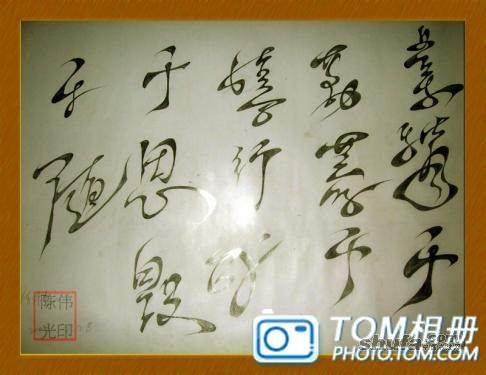 業精于
勤荒于
嬉行成
于思毁
于随
陈伟
光印
TOM相册
PHOTO.TOM.COM